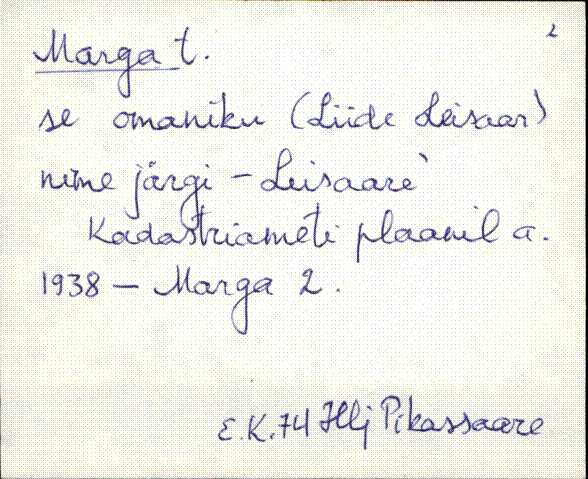 2
Marga t.
se omaniku (Liide Leisaar)
nime järgi - Leisaare`
Kadastriameti plaanil a.
1938 - Marga 2.
E.K.74 Hlj Pikassaare